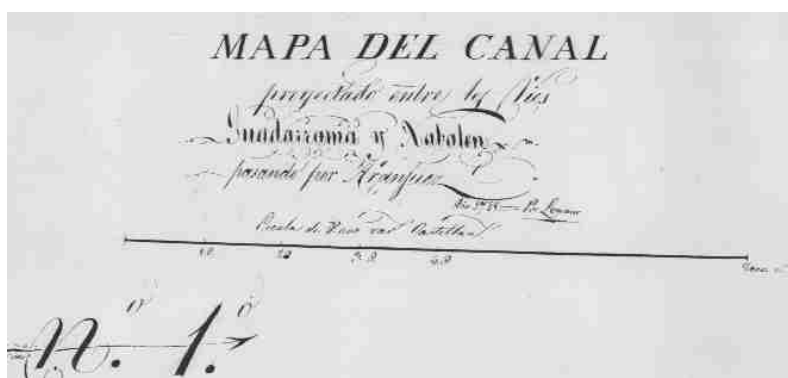 MAPA DEL CANAL
proyectado entre los Rios
Guadarrama y Xabalon
pasando por Aranjuez
Por Lemaur
Escala de varas Castellan
10 20 30 40
n. 1.